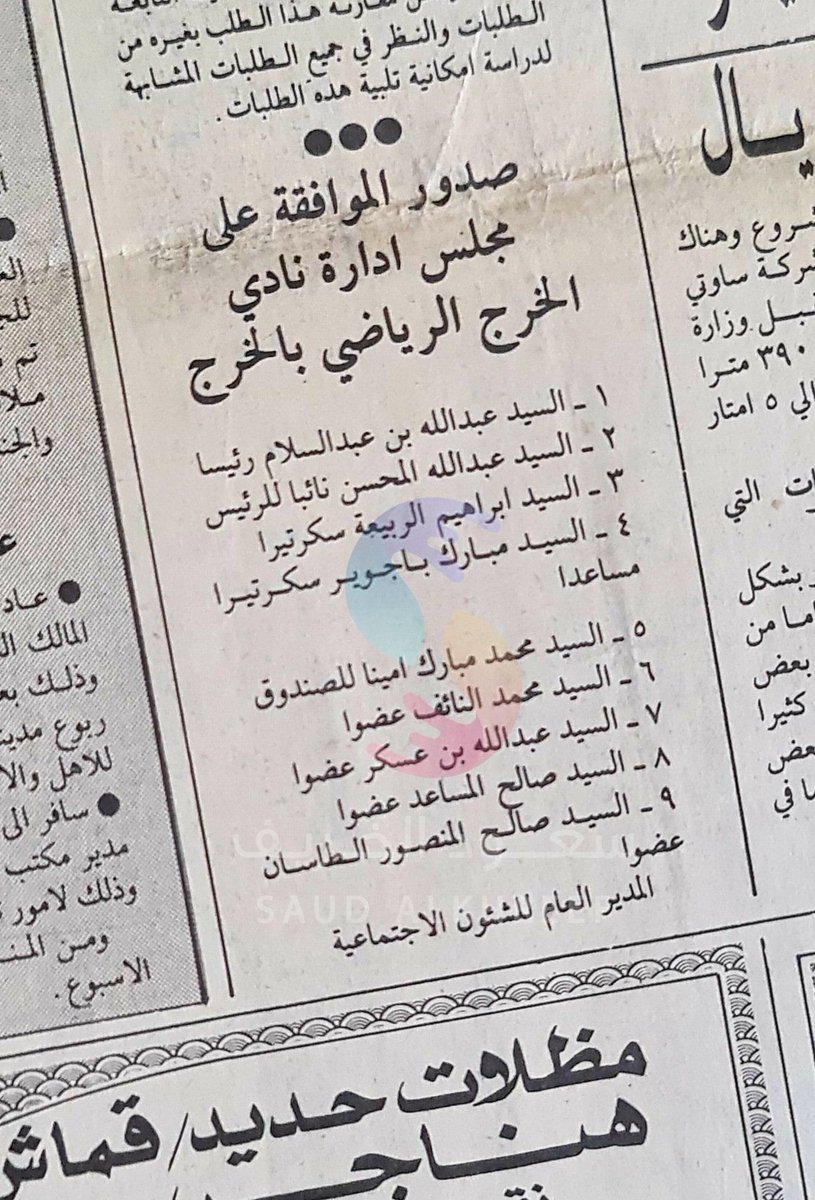 هذا الطلب بغيره من
الطلبات والنظر في جميع الطلبات المشابهة
لدراسة امكانية تلبية هذه الطلبات.
صدور الموافقة على
مجلس ادارة نادي
الخرج الرياضي بالخرج
١ - السيد عبدالله بن عبدالسلام رئيسا
٢ - السيد عبدالله المحسن نائبا للرئيس
٣ - السيد ابراهيم الربيعة سكرتيرا
٤ - السيد مبارك باجوير سكرتيرا
مساعدا
٥ - السيد محمد مبارك امينا للصندوق
٦ - السيد محمد النائف عضوا
٧ - السيد عبدالله بن عسكر عضوا
٨ - السيد صالح المساعد عضوا
٩ - السيد صالح المنصور الطاسان
عضوا
المدير العام للشئون الاجتماعية
يال
شروع وهناك
شركة ساوتي
قبل وزارة
٣٩٠ مترا
الي ٥ امتار
التي
بشكل
اما من
بعض
كثيرا
في
والجن
● عاد
المالك
وذلك بع
ربوع مدين
للاهل والا
● سافر الى
مدير مكتب
وذلك لامور
ومن المن
الاسبوع.
مظلات حديد/قماش
هناجر
سعود الخريف
SAUD ALKHURIEF